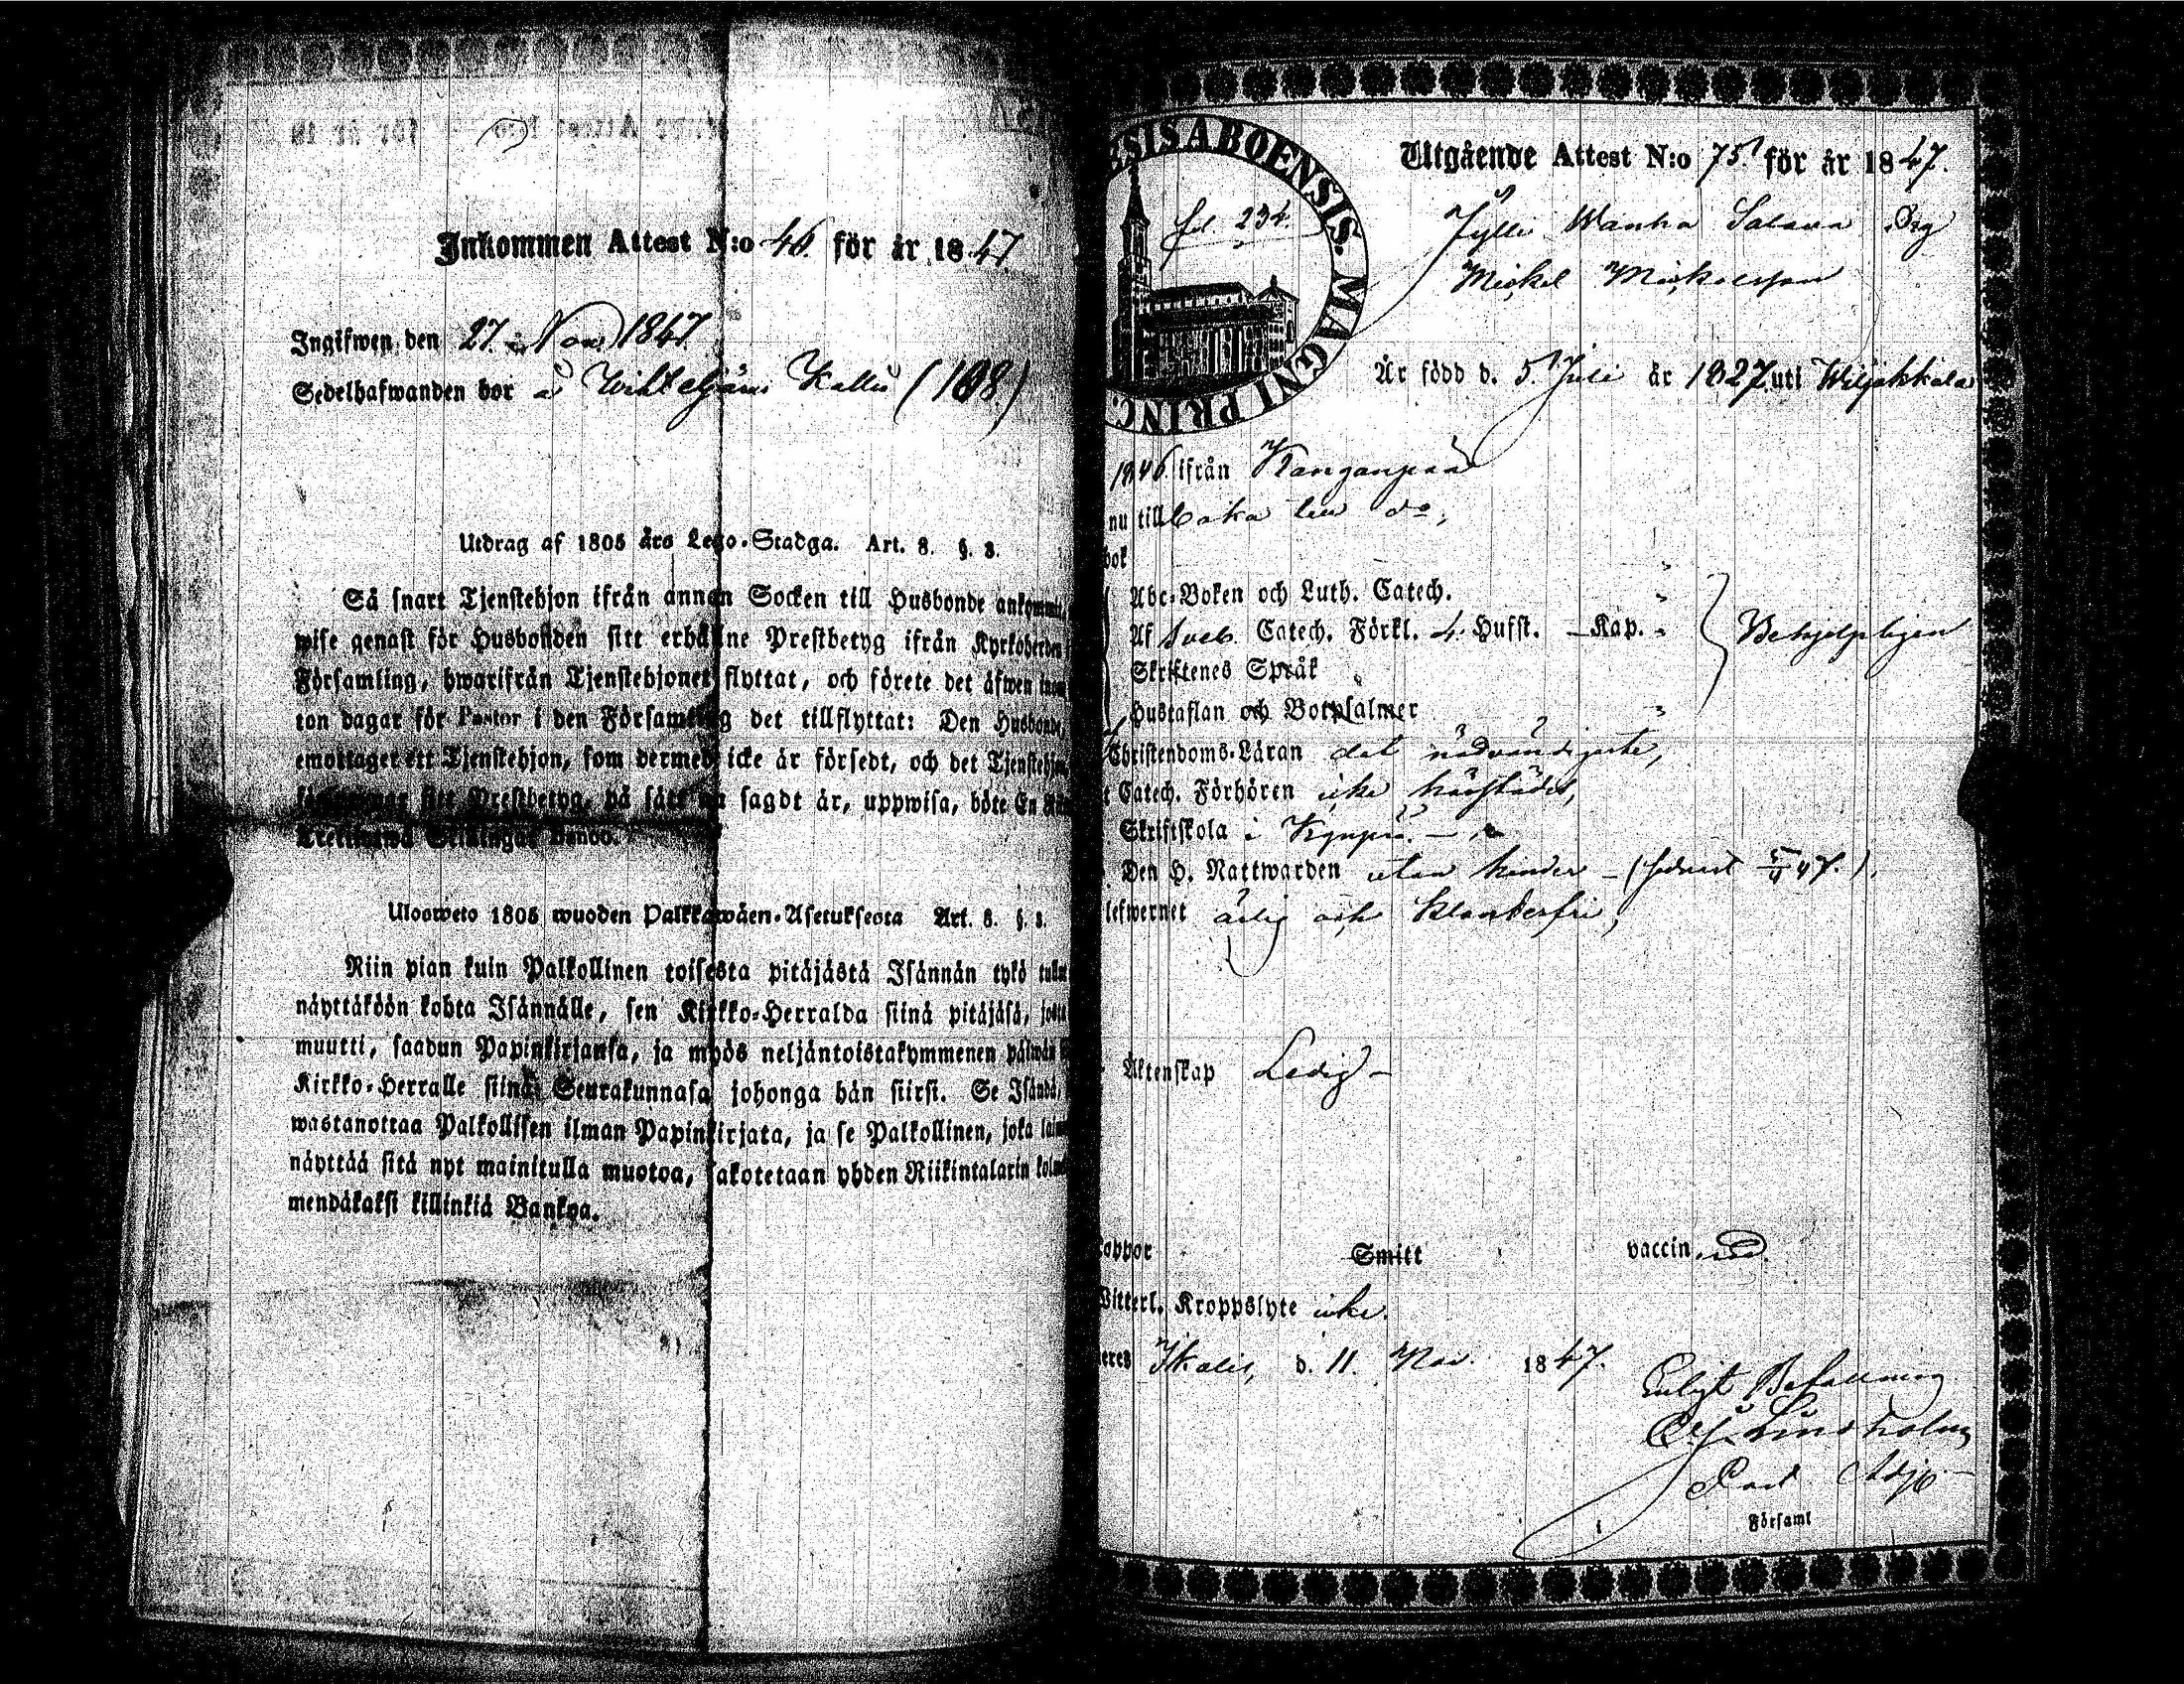 Inkommen Attest N:o 46. för år 1847.
Ingifwen den 27. Nov. 1847
Sedelhafwanden bor å Kallu (108.)
Utdrag af 1805 års Lego-Stadga. Art. 8. §. 3.
Så snart Tjenstehjon ifrån annan Socken till Husbonde
wise genast för Husbonden sitt erhållne Prestbetyg ifrån Kyrkoherden
Församling, hwarifrån Tjenstehjonet flyttat, och förete det äfwen
ton dagar för Pastor i den Församling det tillflyttat: Den Husbonde,
emottager ett Tjenstehjon, som dermed icke är försedt, och det Tjenstehjon,
sitt Prestbetyg, på sätt nu sagdt är, uppwisa, böte En
Skillingar Banco.
Uloswető 1805 wuoden Palkkawäen-Asetuksesta Art. 8. §. 3.
Niin pian kuin Palkollinen toisesta pitäjästä Isännän tykö
näyttäköön kohta Isännälle, sen Kirkko-Herralda siinä pitäjäsä,
muutti, saadun Papinkirjansa, ja myös neljäntoistakymmenen päiwän
Kirkko-Herralle siinä Seurakunnasa johonga hän siirsi. Se Isändä,
wastanottaa Palkollisen ilman Papinkirjata, ja se Palkollinen, joka
näyttää sitä nyt mainitulla muotoa, sakotetaan yhden Riikintalarin
mendäkaksi killinkiä Bankoa.
ESIS ABOENSIS. MAGNI PRINC.
fol 234.
Utgående Attest N:o 75 för år 1847.
Jylli Wanha Salava Drg
Mickel Mickelsson
Är född d. 5 Juli år 1827 uti Wiljakkala
1846 ifrån Kanganpää
nu till baka till do,
bok
Abc-Boken och Luth. Catech.
Af Sveb. Catech. Förkl. 4. Hufst. – Kap. Behjelpligen
Skriftenes Språk
Hustaflan och Botpsalmer
Christendoms-Läran det nödvändigaste,
Catech. Förhören icke härstädes,
Skriftskola i
Den H. Nattwarden utan hinder – (sednast 47.).
lefwernet ärlig och klanderfri,
Äktenskap Ledig –
oppor Smitt vaccinerad.
Witterl. Kroppslyte icke.
eres Ikalis, d. 11. Nov. 1847.
Enligt Befallning
Lindholm
Past. Adj.
i Församl